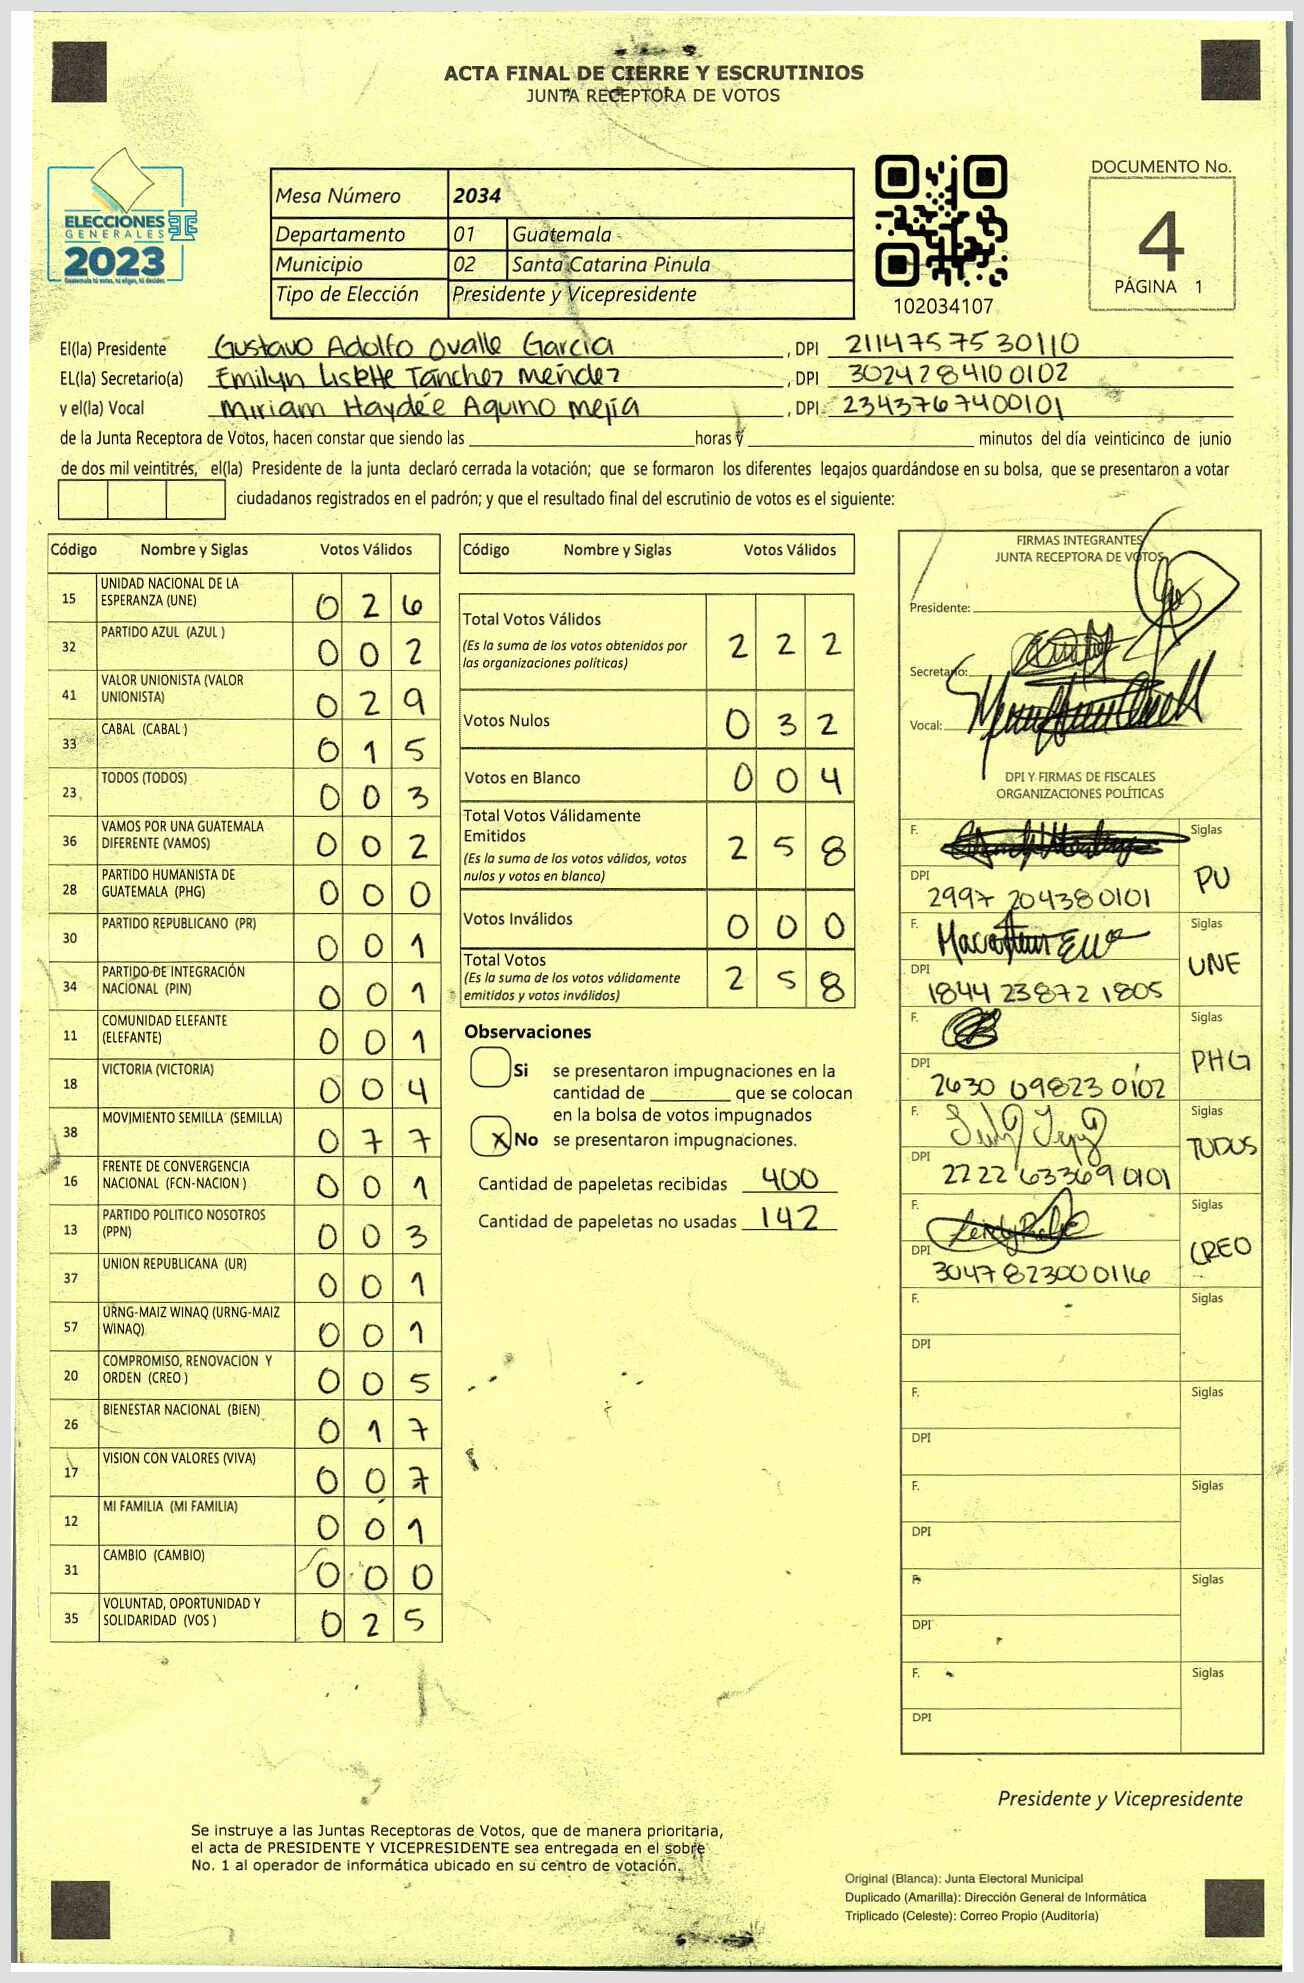 ACTA FINAL DE CIERRE Y ESCRUTINIOS
JUNTA RECEPTORA DE VOTOS
ELECCIONES
GENERALES
2023
Guatemala tú votas, tú eliges, tú decides
Mesa Número 2034
Departamento 01 Guatemala
Municipio 02 Santa Catarina Pinula
Tipo de Elección Presidente y Vicepresidente
102034107
DOCUMENTO No.
4
PÁGINA 1
El(la) Presidente Gustavo Adolfo Ovalle Garcia , DPI 2114757530110
EL(la) Secretario(a) Emilyn Lisette Tánchez Méndez , DPI 3024284100102
y el(la) Vocal Miriam Haydée Aquino Mejía , DPI 2343767400101
de la Junta Receptora de Votos, hacen constar que siendo las horas y minutos del día veinticinco de junio
de dos mil veintitrés, el(la) Presidente de la junta declaró cerrada la votación; que se formaron los diferentes legajos guardándose en su bolsa, que se presentaron a votar
ciudadanos registrados en el padrón; y que el resultado final del escrutinio de votos es el siguiente:
Código Nombre y Siglas Votos Válidos
15 UNIDAD NACIONAL DE LA
ESPERANZA (UNE) 0 2 6
32 PARTIDO AZUL (AZUL ) 0 0 2
41 VALOR UNIONISTA (VALOR
UNIONISTA) 0 2 9
33 CABAL (CABAL ) 0 1 5
23 TODOS (TODOS) 0 0 3
36 VAMOS POR UNA GUATEMALA
DIFERENTE (VAMOS) 0 0 2
28 PARTIDO HUMANISTA DE
GUATEMALA (PHG) 0 0 0
30 PARTIDO REPUBLICANO (PR) 0 0 1
34 PARTIDO DE INTEGRACIÓN
NACIONAL (PIN) 0 0 1
11 COMUNIDAD ELEFANTE
(ELEFANTE) 0 0 1
18 VICTORIA (VICTORIA) 0 0 4
38 MOVIMIENTO SEMILLA (SEMILLA) 0 7 7
16 FRENTE DE CONVERGENCIA
NACIONAL (FCN-NACION ) 0 0 1
13 PARTIDO POLITICO NOSOTROS
(PPN) 0 0 3
37 UNION REPUBLICANA (UR) 0 0 1
57 URNG-MAIZ WINAQ (URNG-MAIZ
WINAQ) 0 0 1
20 COMPROMISO, RENOVACION Y
ORDEN (CREO ) 0 0 5
26 BIENESTAR NACIONAL (BIEN) 0 1 7
17 VISION CON VALORES (VIVA) 0 0 7
12 MI FAMILIA (MI FAMILIA) 0 0 1
31 CAMBIO (CAMBIO) 0 0 0
35 VOLUNTAD, OPORTUNIDAD Y
SOLIDARIDAD (VOS ) 0 2 5
Código Nombre y Siglas Votos Válidos
Total Votos Válidos
(Es la suma de los votos obtenidos por
las organizaciones políticas) 2 2 2
Votos Nulos 0 3 2
Votos en Blanco 0 0 4
Total Votos Válidamente
Emitidos
(Es la suma de los votos válidos, votos
nulos y votos en blanco) 2 5 8
Votos Inválidos 0 0 0
Total Votos
(Es la suma de los votos válidamente
emitidos y votos inválidos) 2 5 8
Observaciones
Si se presentaron impugnaciones en la
cantidad de que se colocan
en la bolsa de votos impugnados
X No se presentaron impugnaciones.
Cantidad de papeletas recibidas 400
Cantidad de papeletas no usadas 142
FIRMAS INTEGRANTES
JUNTA RECEPTORA DE VOTOS
Presidente:
Secretario:
Vocal:
DPI Y FIRMAS DE FISCALES
ORGANIZACIONES POLÍTICAS
F. Siglas
DPI PU
2997 20438 0101
F. Siglas
DPI UNE
1844 23872 1805
F. Siglas
DPI PHG
2630 09823 0102
F. Siglas
DPI TODOS
2222 63369 0101
F. Siglas
DPI CREO
3047 82300 0116
F. Siglas
DPI
F. Siglas
DPI
F. Siglas
DPI
F. Siglas
DPI
F. Siglas
DPI
Presidente y Vicepresidente
Se instruye a las Juntas Receptoras de Votos, que de manera prioritaria,
el acta de PRESIDENTE Y VICEPRESIDENTE sea entregada en el sobre
No. 1 al operador de informática ubicado en su centro de votación.
Original (Blanca): Junta Electoral Municipal
Duplicado (Amarilla): Dirección General de Informática
Triplicado (Celeste): Correo Propio (Auditoría)